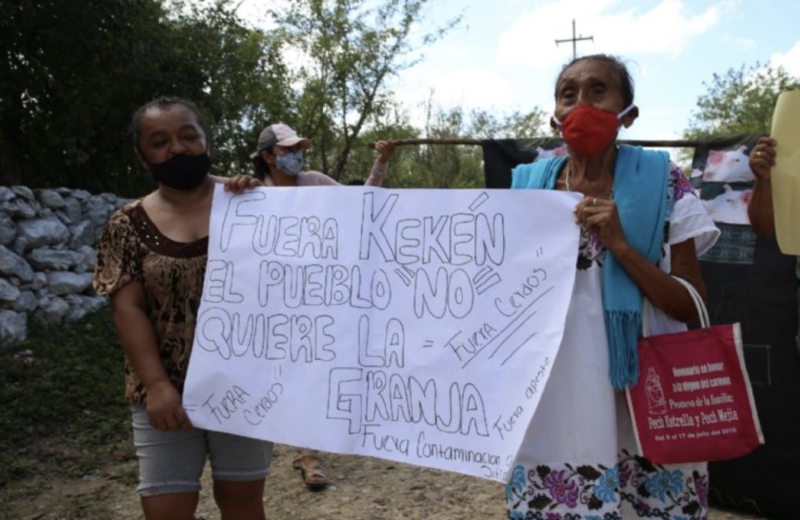 FUERA KEKÉN
EL PUEBLO "NO"
QUIERE LA
GRANJA
= Fuera Cerdos"
"FUERA
Cerdos"
Fuera apeste
Fuera Contaminacion
Novenario en honor
a la virgen del carmen
Promesa de la familia:
Pech Estrella y Pech Mejia
Del 9 al 17 de julio del 2018